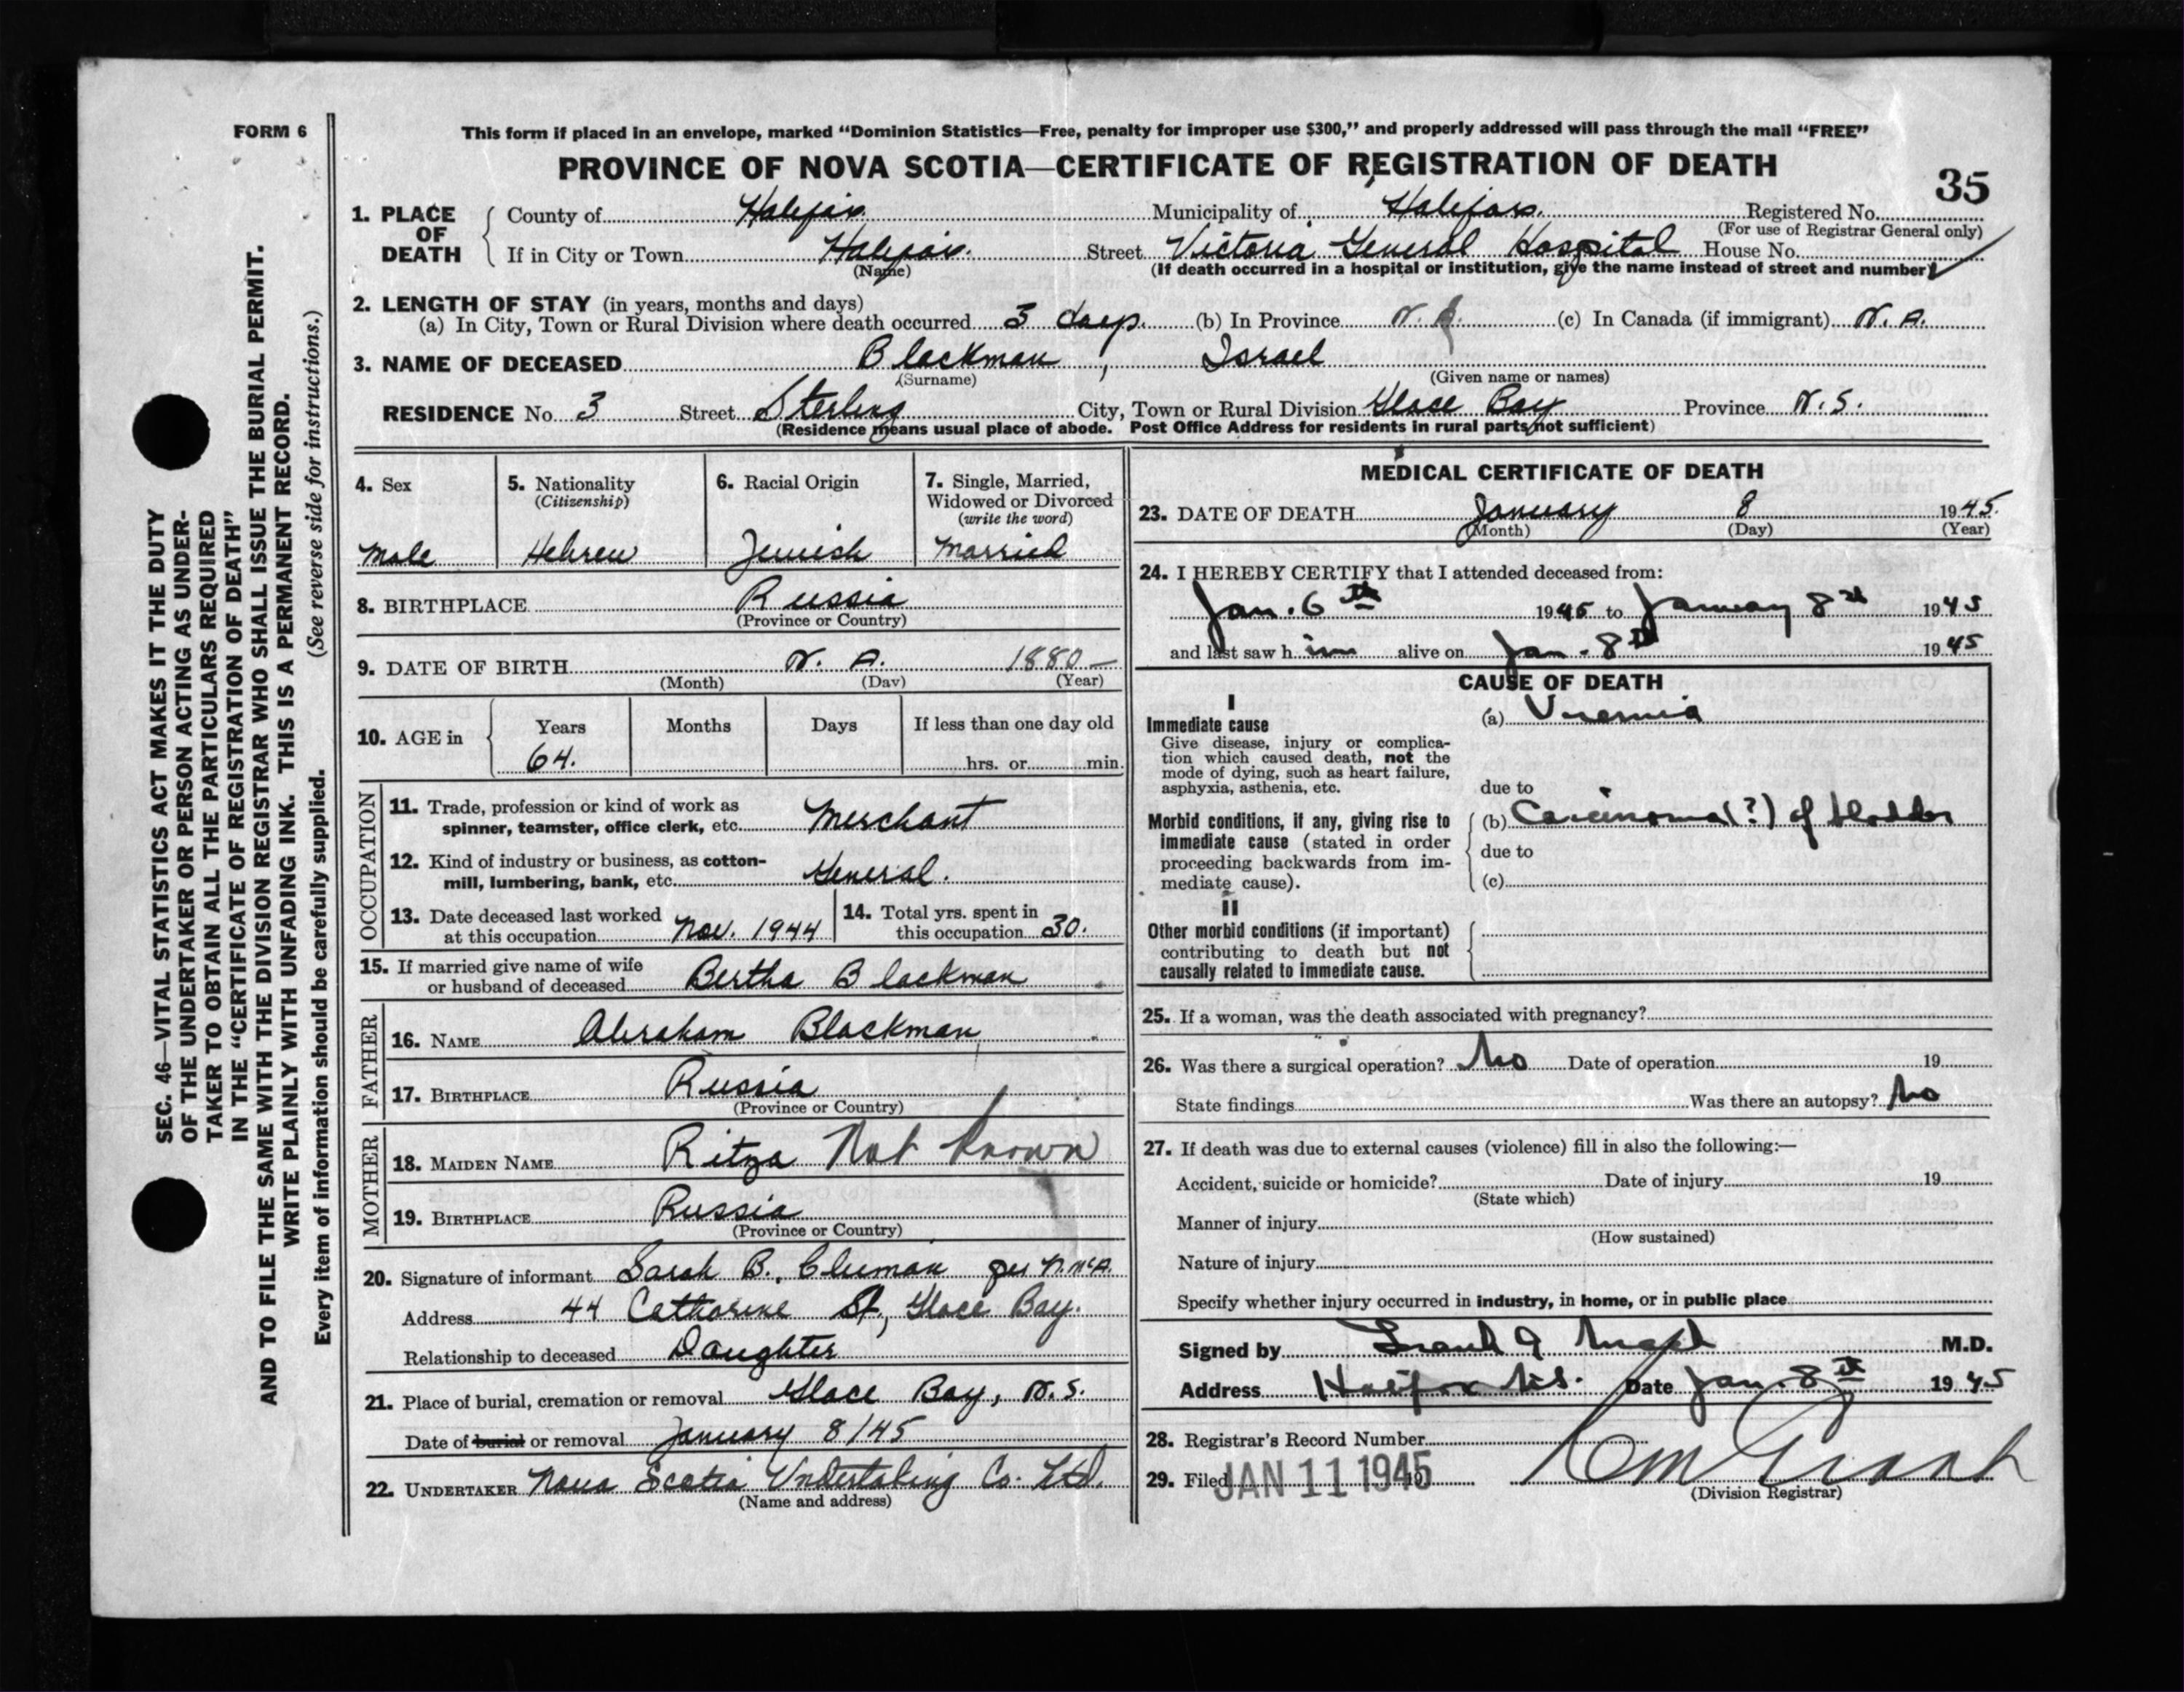 FORM 6
This form if placed in an envelope, marked “Dominion Statistics—Free, penalty for improper use $300,” and properly addressed will pass through the mail “FREE”
PROVINCE OF NOVA SCOTIA—CERTIFICATE OF REGISTRATION OF DEATH
35
1. PLACE OF DEATH
County of Halifax Municipality of Halifax Registered No.
(For use of Registrar General only)
If in City or Town Halifax. Street Victoria General Hospital House No.
(Name) (If death occurred in a hospital or institution, give the name instead of street and number)
2. LENGTH OF STAY (in years, months and days)
(a) In City, Town or Rural Division where death occurred 3 days. (b) In Province N. A. (c) In Canada (if immigrant) N. A.
3. NAME OF DECEASED Blackman, Israel
(Surname) (Given name or names)
RESIDENCE No. 3 Street Sterling City, Town or Rural Division Glace Bay Province N. S.
(Residence means usual place of abode. Post Office Address for residents in rural parts not sufficient)
4. Sex
Male
5. Nationality
(Citizenship)
Hebrew
6. Racial Origin
Jewish
7. Single, Married,
Widowed or Divorced
(write the word)
Married
8. BIRTHPLACE Russia
(Province or Country)
9. DATE OF BIRTH N. A. 1880 —
(Month) (Day) (Year)
10. AGE in
Years Months Days If less than one day old
64. hrs. or min.
OCCUPATION
11. Trade, profession or kind of work as
spinner, teamster, office clerk, etc. Merchant
12. Kind of industry or business, as cotton-
mill, lumbering, bank, etc. General.
13. Date deceased last worked
at this occupation Nov. 1944
14. Total yrs. spent in
this occupation 30.
15. If married give name of wife
or husband of deceased Bertha Blackman
FATHER
16. NAME Abraham Blackman
17. BIRTHPLACE Russia
(Province or Country)
MOTHER
18. MAIDEN NAME Ritza Not known
19. BIRTHPLACE Russia
(Province or Country)
20. Signature of informant Sarah B. per N. McA.
Address 44 Catharine St., Glace Bay.
Relationship to deceased Daughter
21. Place of burial, cremation or removal Glace Bay, N. S.
Date of burial or removal January 8/45
22. UNDERTAKER Nova Scotia Undertaking Co. Ltd.
(Name and address)
MEDICAL CERTIFICATE OF DEATH
23. DATE OF DEATH January 8 1945.
(Month) (Day) (Year)
24. I HEREBY CERTIFY that I attended deceased from:
Jan. 6th 1945 to January 8th 1945
and last saw him alive on Jan. 8th 1945
CAUSE OF DEATH
I
Immediate cause (a) Uremia
Give disease, injury or complica-
tion which caused death, not the
mode of dying, such as heart failure,
asphyxia, asthenia, etc. due to
Morbid conditions, if any, giving rise to (b) Carcinoma (?) of bladder
immediate cause (stated in order
proceeding backwards from im- due to
mediate cause). (c)
II
Other morbid conditions (if important)
contributing to death but not
causally related to immediate cause.
25. If a woman, was the death associated with pregnancy?
26. Was there a surgical operation? No Date of operation 19
State findings Was there an autopsy? No
27. If death was due to external causes (violence) fill in also the following:—
Accident, suicide or homicide? Date of injury 19
(State which)
Manner of injury
(How sustained)
Nature of injury
Specify whether injury occurred in industry, in home, or in public place
Signed by M.D.
Address Halifax N.S. Date Jan. 8th 1945
28. Registrar's Record Number
29. Filed JAN 11 1945 19
(Division Registrar)
SEC. 46—VITAL STATISTICS ACT MAKES IT THE DUTY
OF THE UNDERTAKER OR PERSON ACTING AS UNDER-
TAKER TO OBTAIN ALL THE PARTICULARS REQUIRED
IN THE “CERTIFICATE OF REGISTRATION OF DEATH”
AND TO FILE THE SAME WITH THE DIVISION REGISTRAR WHO SHALL ISSUE THE BURIAL PERMIT.
WRITE PLAINLY WITH UNFADING INK. THIS IS A PERMANENT RECORD.
Every item of information should be carefully supplied. (See reverse side for instructions.)